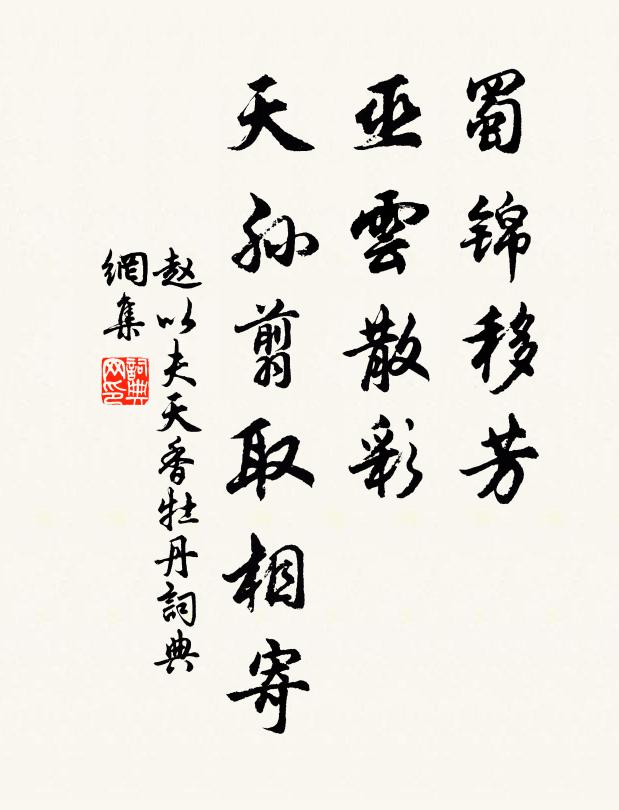 蜀锦移芳
巫雲散彩
天孙翦取相寄
赵以夫天香牡丹詞典
網集
詞典
网印